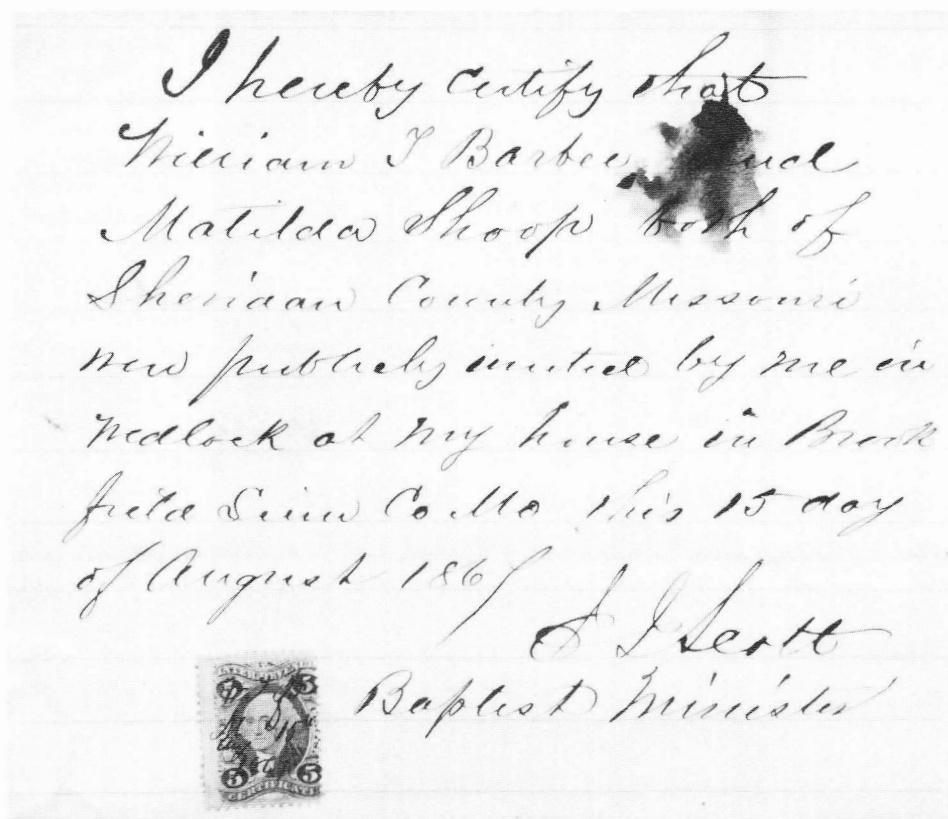 I hereby certify that
William T Barbee and
Matilda Shoop both of
Sheridan County Missouri
were publicly united by me in
wedlock at my house in Brook
field Linn Co Mo this 15 day
of August 1867
Scott
Baptist Minister
5 5
5 5
CERTIFICATE